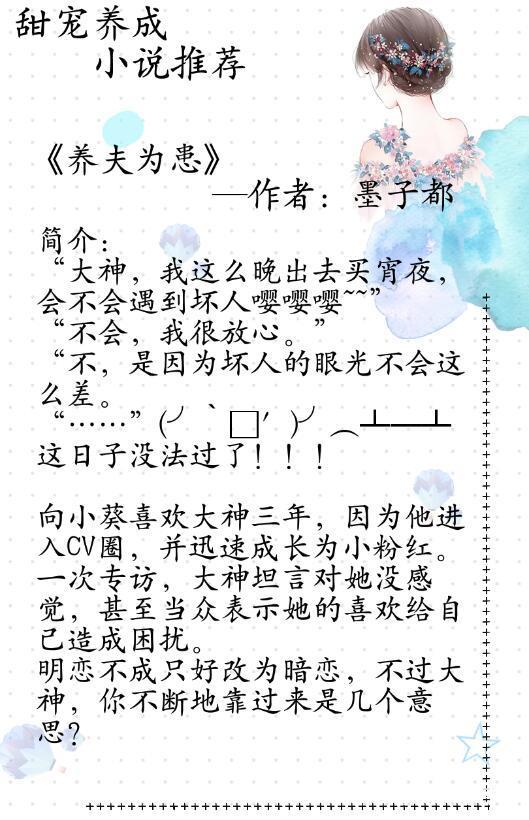 甜宠养成
小说推荐
《养夫为患》
—作者：墨子都
简介：
“大神，我这么晚出去买宵夜，
会不会遇到坏人嘤嘤嘤~~”
“不会，我很放心。”
“不，是因为坏人的眼光不会这
么差。
“……”(╯‵□′)╯︵┻━┻
这日子没法过了！！！
向小葵喜欢大神三年，因为他进
入CV圈，并迅速成长为小粉红。
一次专访，大神坦言对她没感
觉，甚至当众表示她的喜欢给自
己造成困扰。
明恋不成只好改为暗恋，不过大
神，你不断地靠过来是几个意
思？